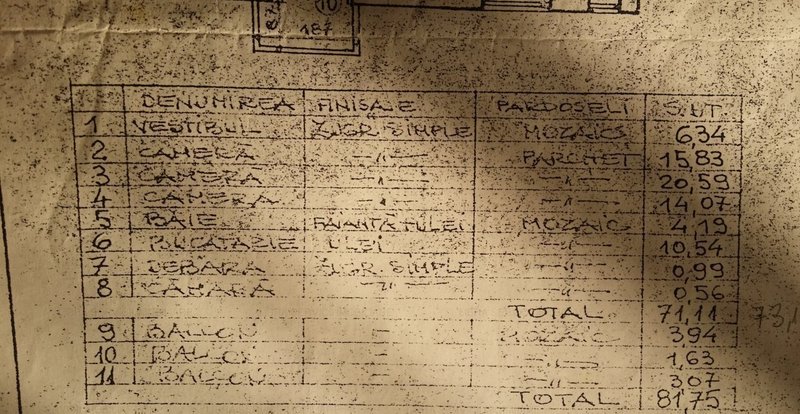 10
187
DENUMIREA FINISAJE PARDOSELI S.UT.
1 VESTIBUL ZUGR. SIMPLE MOZAIC 6,34
2 CAMERA —„— PARCHET 15,83
3 CAMERA —„— —„— 20,59
4 CAMERA —„— —„— 14,07
5 BAIE FAIANȚĂ+ULEI MOZAIC 4,19
6 BUCATARIE ULEI —„— 10,54
7 DEBARA ZUGR. SIMPLE —„— 0,99
8 CAMARA —„— —„— 0,56
TOTAL 71,11
9 BALCON — MOZAIC 3,94
10 BALCON — —„— 1,63
11 BALCON — —„— 3,07
TOTAL 81,75